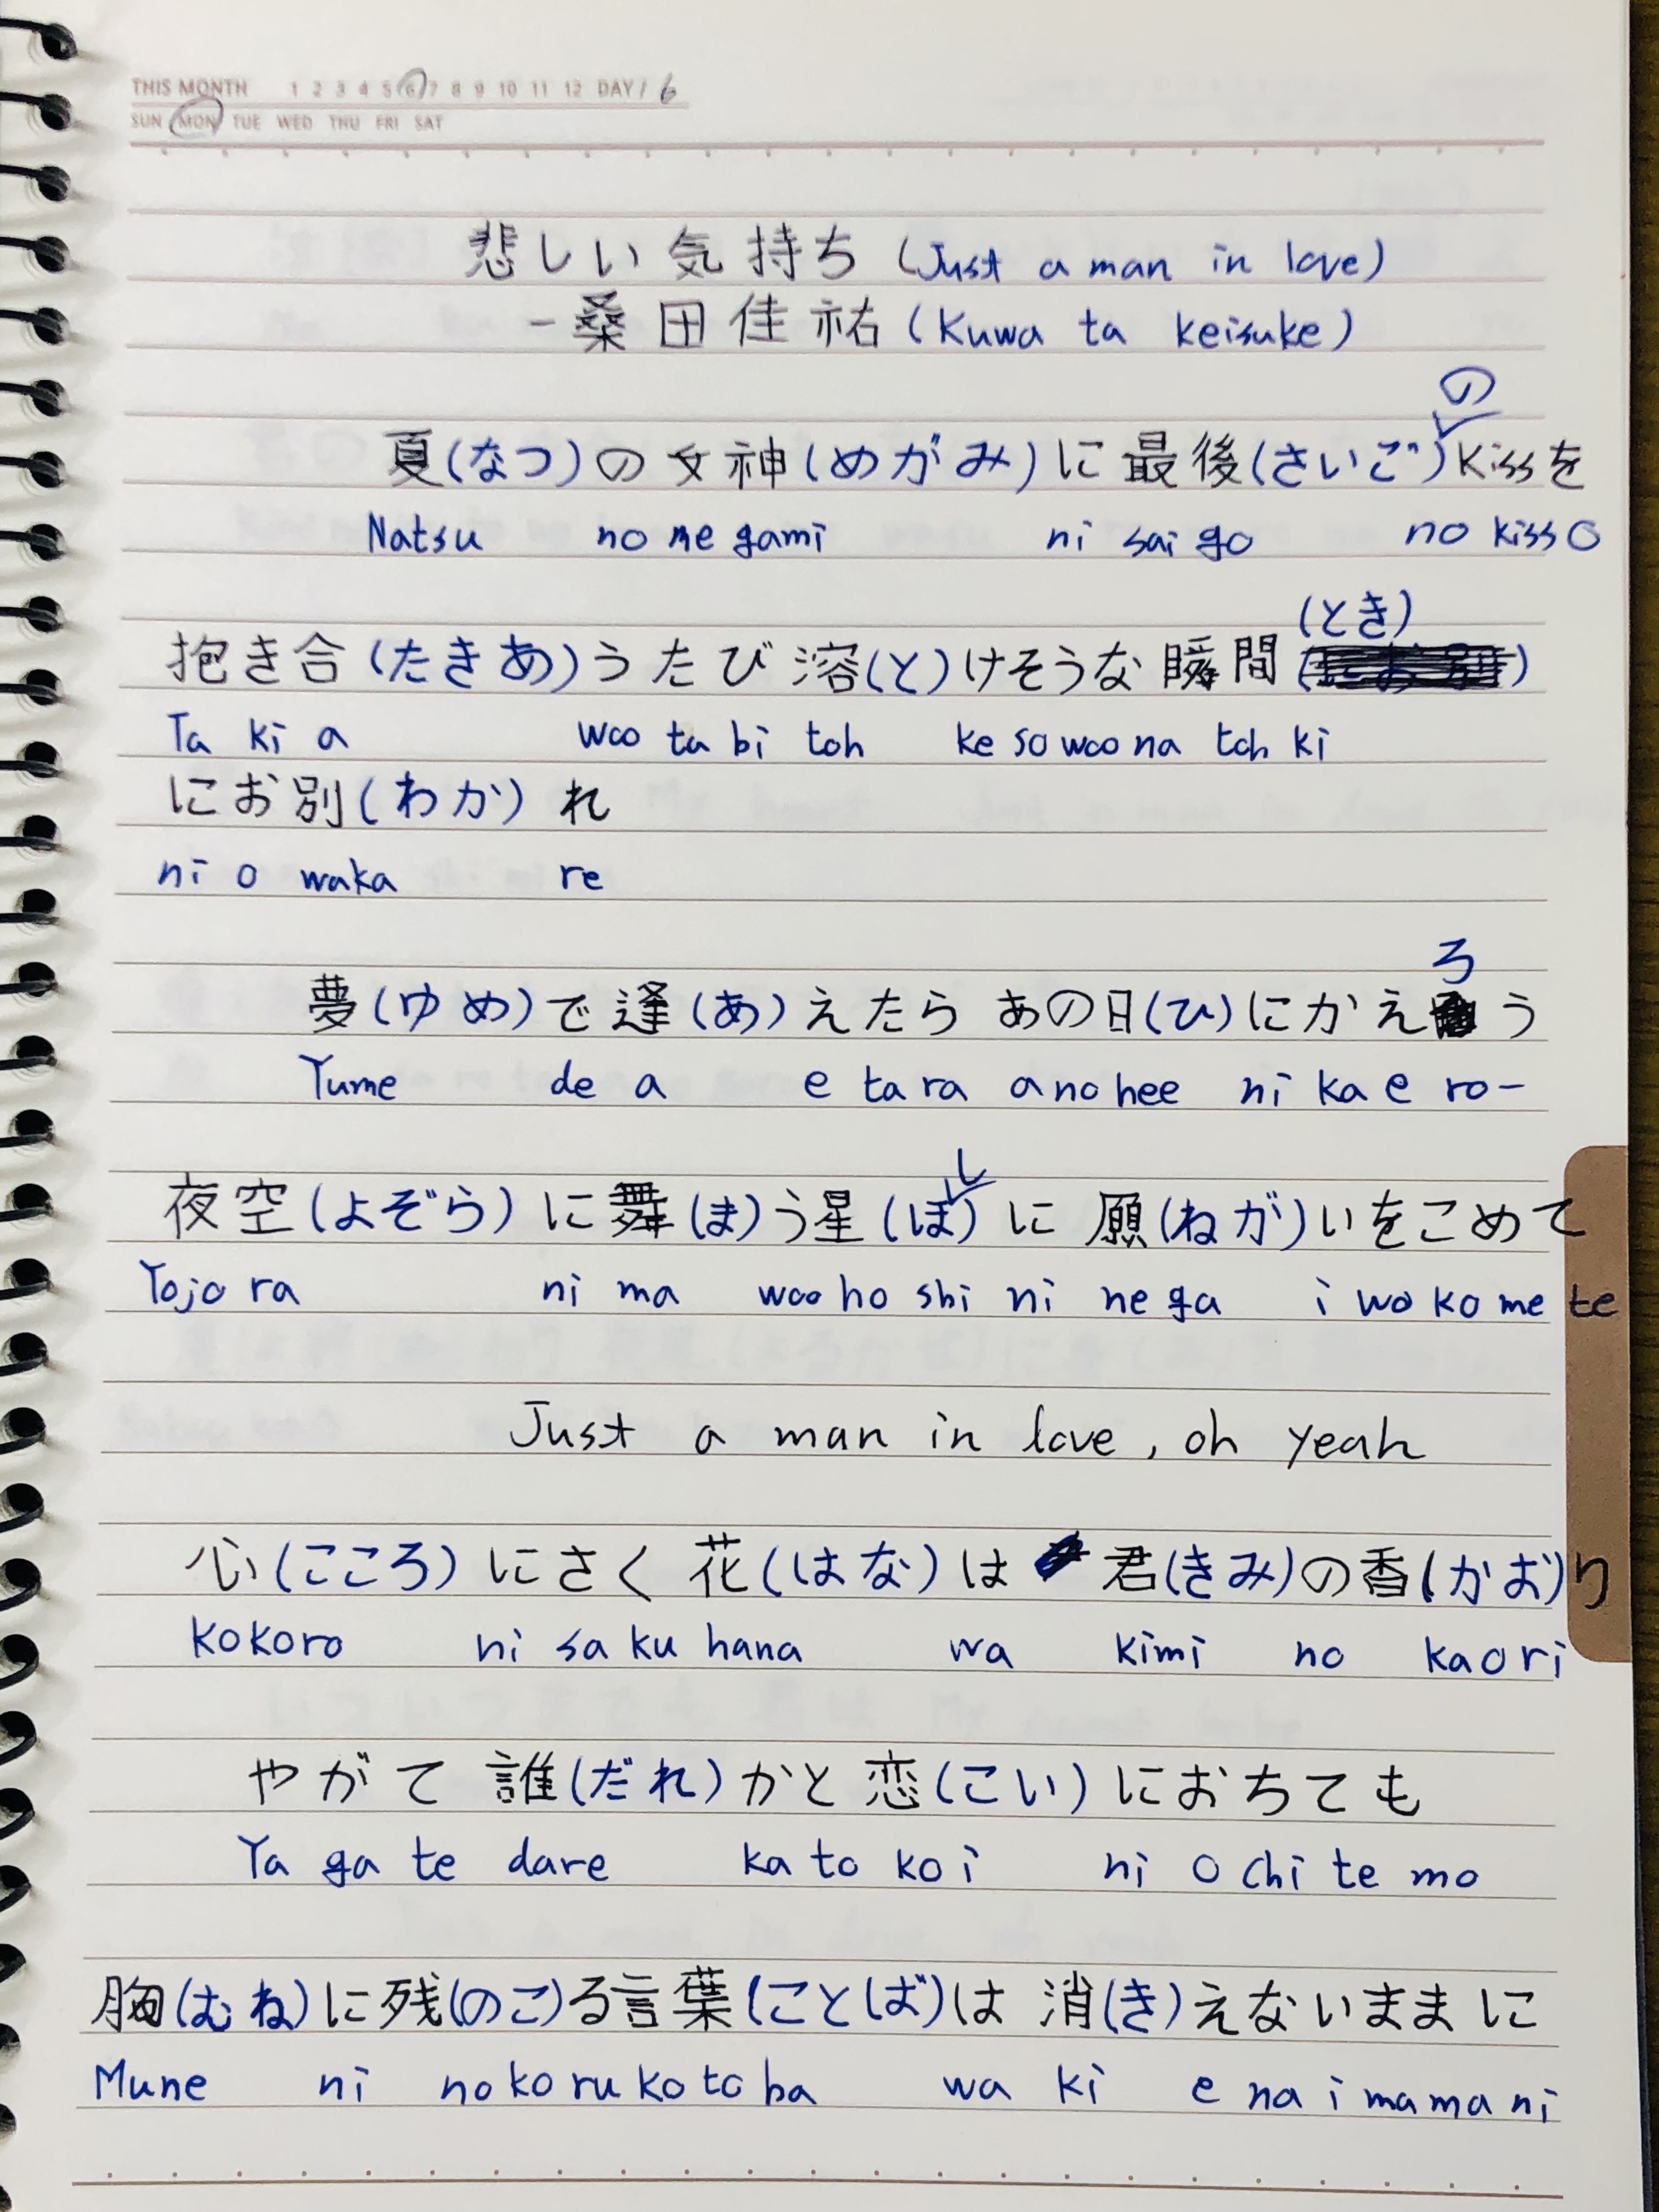 THIS MONTH 1 2 3 4 5 6 7 8 9 10 11 12 DAY / 6
SUN MON TUE WED THU FRI SAT
悲しい気持ち (Just a man in love)
- 桑田佳祐 (Kuwa ta keisuke)
夏(なつ)の女神(めがみ)に最後(さいご)のkissを
Natsu no me gami ni sai go no kiss o
抱き合(たきあ)うたび溶(と)けそうな瞬間(とき)
Ta ki a woo ta bi toh ke so woo na toh ki
にお別(わか)れ
ni o waka re
夢(ゆめ)で逢(あ)えたら あの日(ひ)にかえろう
Yume de a e ta ra a no hee ni ka e ro-
夜空(よぞら)に舞(ま)う星(ほし)に願(ねが)いをこめて
Yojo ra ni ma woo ho shi ni ne ga i wo ko me te
Just a man in love, oh yeah
心(こころ)にさく花(はな)は君(きみ)の香(かお)り
kokoro ni sa ku hana wa kimi no kaori
やがて誰(だれ)かと恋(こい)におちても
Ya ga te dare ka to ko i ni o chi te mo
胸(むね)に残(のこ)る言葉(ことば)は消(き)えないままに
Mune ni no ko ru ko to ba wa ki e na i ma ma ni